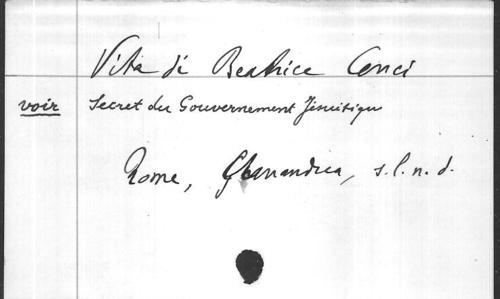 Vita di Beatrice Cenci
voir Secret du Gouvernement Jesuitique
Rome, s.l.n.d.